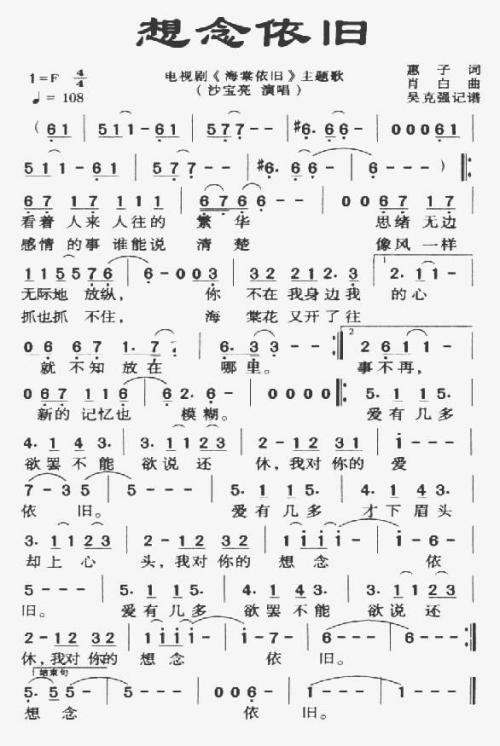 想念依旧
1=F 4/4
♩=108
电视剧《海棠依旧》主题歌
(沙宝亮 演唱)
惠子词
肖白曲
吴克强记谱
(61 | 511-61 | 577-- | #6·66- | 00061 |
511-61 | 577-- | #6·66-- | 6---) ‖:
67 17 111 | 6766-- | 0067 17 |
看着 人来 人往的 繁华 思绪 无边
感情 的事 谁能说 清楚 像风 一样
115576 | 6-003 | 32 212·3 | 1. 2·11- |
无际地 放纵, 你 不在我身边我 的心
抓也抓 不住, 海 棠花 又开了往
067 67 1·7 | 6·33-- :‖ 2. 2611- |
就 不知 放在 哪里。 事不再,
067 11 16 | 62·6- | 0000 ‖: 5·1 15· |
新的 记忆也 模糊。 爱有几多
4·1 43· | 3·1123 | 2-12 32 | i--- |
欲罢不能 欲说还 休,我对你的 爱
7-35 | 5--- | 5·1 15· | 4·1 43· |
依 旧。 爱有几多 才下眉头
3·1123 | 2-12 32 | 1iii- | i-6- |
却上心 头,我对你的 想念 依
5--- | 5·1 15· | 4·1 43· | 3·1123 |
旧。 爱有几多 欲罢不能 欲说还
2-12 32 | 1iii- | i-7- | i--- |
休,我对你的 想念 依 旧。
结束句
5·55- | 5--- | 006- | i--- | i--- ‖
想念 依 旧。